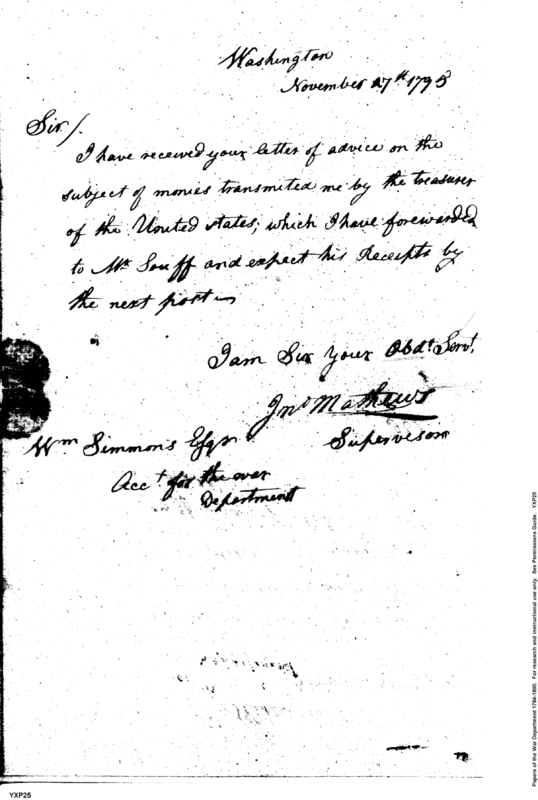 Washington
November 27th 1795
Sir/.
I have received your letter of advice on the
subject of monies transmited me by the treasurer
of the United states, which I have forewarded
to Mr Souff and expect his Receipts by
the next post
I am Sir Your Obdt. Servt.
Jno Mathews
Supervisor
Wm Simmons Esqr
Acct for the war
Department
Papers of the War Department 1784-1800. For research and instructional use only. See Permissions Guide. YXP25
YXP25